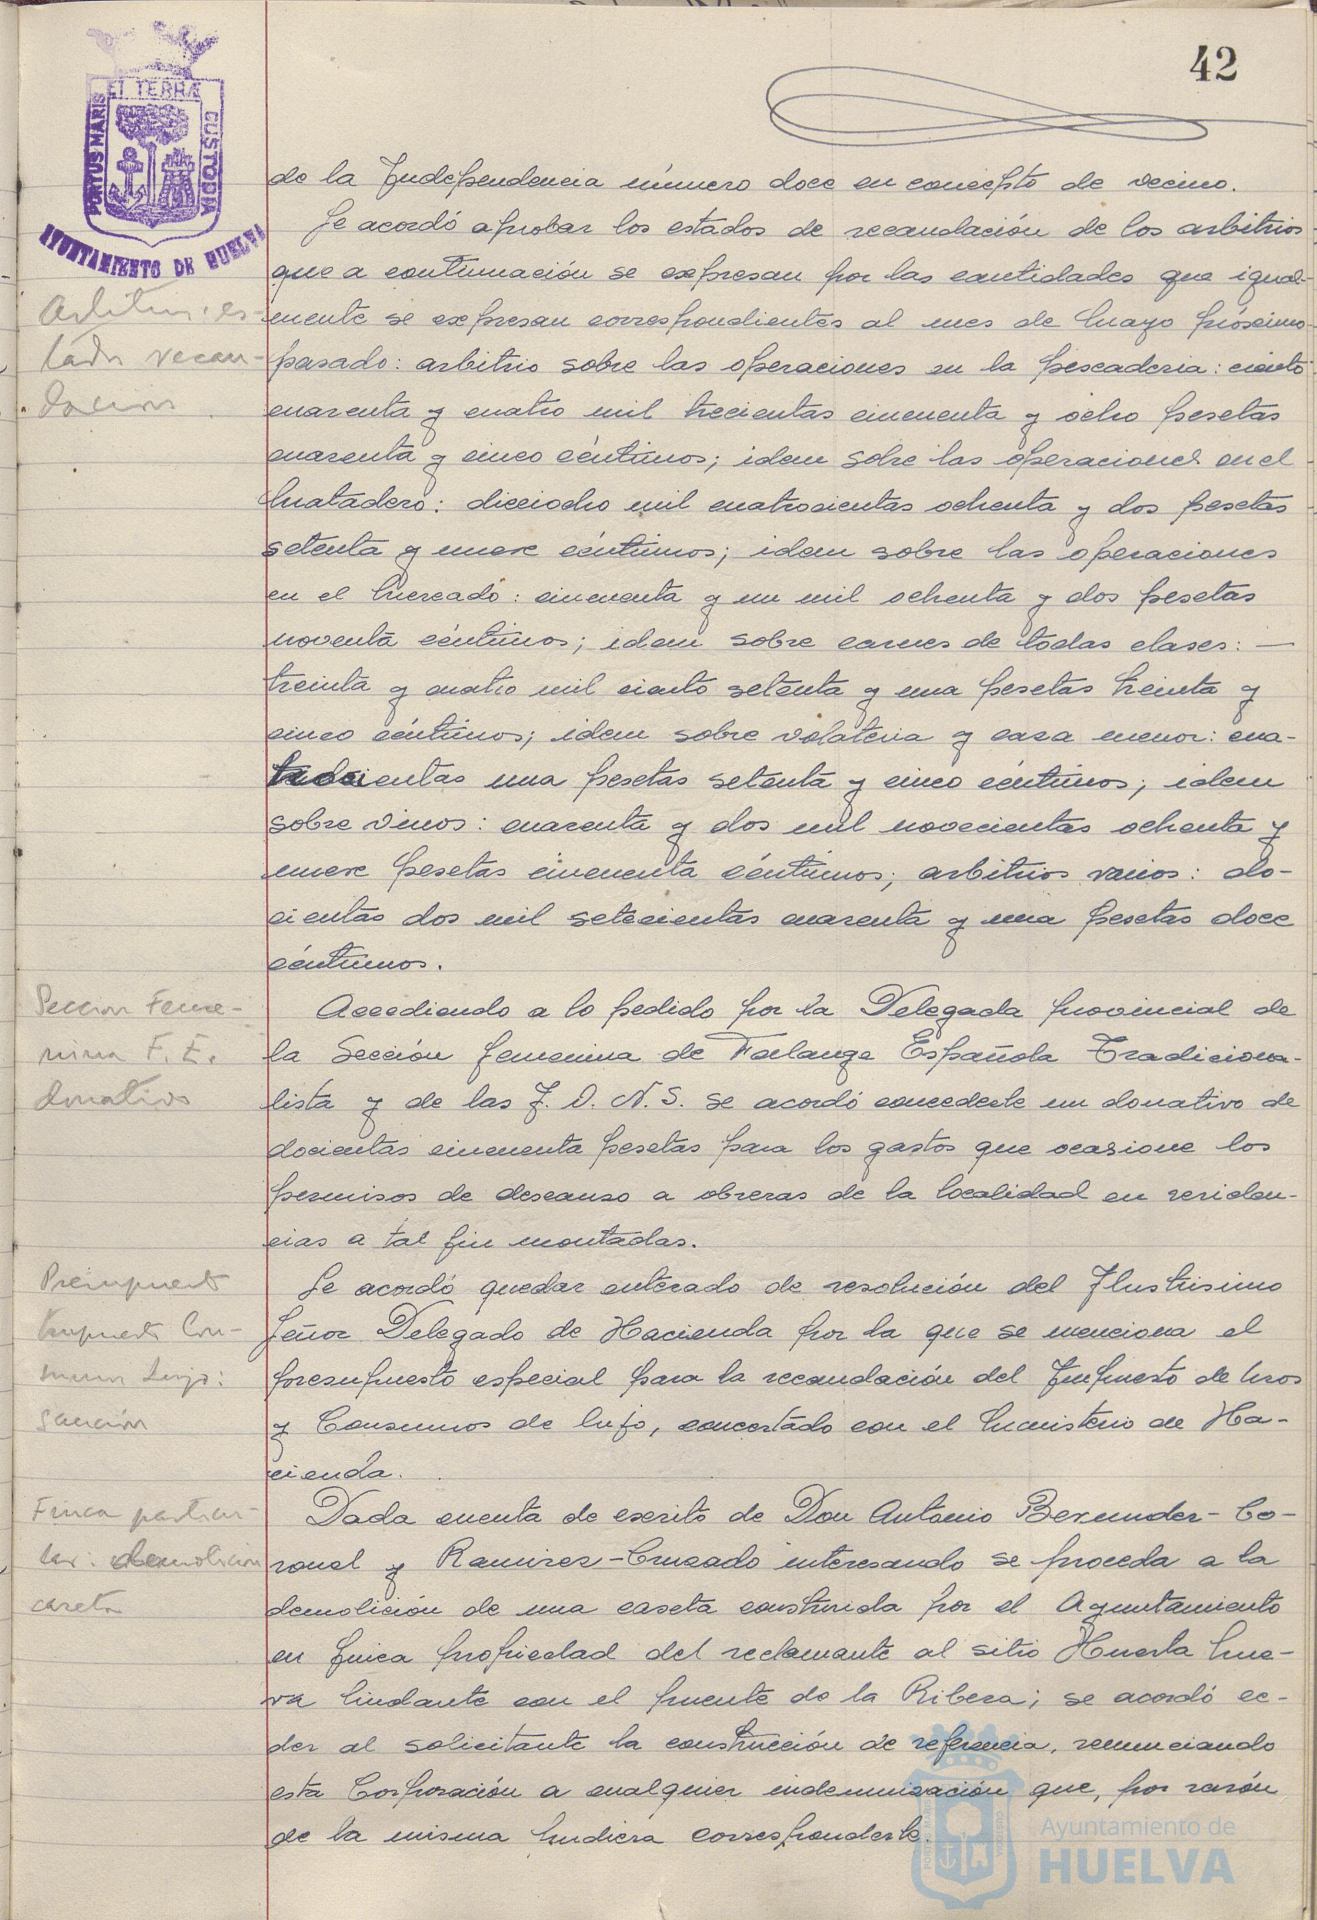 42
PORTUS MARIS ET TERRÆ CUSTODIA
AYUNTAMIENTO DE HUELVA
de la Independencia número doce en concepto de vecino.
Se acordó aprobar los estados de recaudación de los arbitrios
que a continuación se expresan por las cantidades que igual-
Arbitrios: es-
mente se expresan correspondientes al mes de Mayo próximo
tados recau-
pasado: arbitrio sobre las operaciones en la pescadería: ciento
dacion
cuarenta y cuatro mil trecientas cincuenta y ocho pesetas
cuarenta y cinco céntimos; idem sobre las operaciones en el
Matadero: dieciocho mil cuatrocientas ochenta y dos pesetas
setenta y nueve céntimos; idem sobre las operaciones
en el Mercado: cincuenta y un mil ochenta y dos pesetas
noventa céntimos; idem sobre carnes de todas clases: —
treinta y cuatro mil ciento setenta y una pesetas treinta y
cinco céntimos; idem sobre volatería y caza menor: cua-
trocientas una pesetas setenta y cinco céntimos; idem
sobre vinos: cuarenta y dos mil novecientas ochenta y
nueve pesetas cincuenta céntimos; arbitrios varios: do-
cientas dos mil setecientas cuarenta y una pesetas doce
céntimos.
Seccion Feme-
Accediendo a lo pedido por la Delegada provincial de
nina F. E.
la Sección femenina de Falange Española Tradiciona-
donativo
lista y de las J. O. N. S. se acordó concederle un donativo de
docientas cincuenta pesetas para los gastos que ocasione los
permisos de descanso a obreras de la localidad en residen-
cias a tal fin montadas.
Presupuesto
Se acordó quedar enterado de resolución del Ilustrísimo
Impuesto Con-
Señor Delegado de Hacienda por la que se menciona el
sumos Lujo:
presupuesto especial para la recaudación del Impuesto de Usos
sanción
y Consumos de lujo, concertado con el Ministerio de Ha-
cienda.
Finca particu-
Dada cuenta de escrito de Don Antonio Bermudez-Co-
lar: demolicion
ronel y Ramirez-Cruzado interesando se proceda a la
caseta
demolición de una caseta construida por el Ayuntamiento
en finca propiedad del reclamante al sitio Huerta Nue-
va lindante con el puente de la Ribera; se acordó ce-
der al solicitante la construcción de referencia, renunciando
esta Corporación a cualquier indemnización que, por razón
de la misma pudiera corresponderle.
Ayuntamiento de
HUELVA